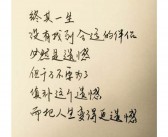 终其一生
没有找到合适的伴侣
必然是遗憾
但千万不要为了
填补这个遗憾
而把人生变得更遗憾